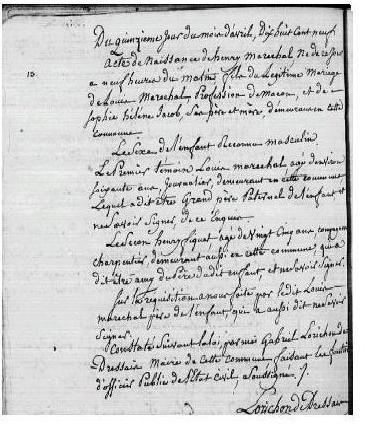 Du quinzieme jour du mois d'avril, dix huit cent neuf
acte de Naissance de henry marechal Né de ce jour
13.
a neuf heures du matin fils du Legitime Mariage
de Louis Marechal Profession de Macon, et de
sophie hélène Jacob, Ses père et mère, demeurant en cette
commune
Le Sexe de L'enfant Reconnu masculin
Le Premier temoin Louis marechal agé d'environ
soixante ans, Journalier, demeurant en cette commune
Lequel a dit être Grand père Paternel de L'enfant et
ne savoir Signer, de ce
Le Second henry agé de vingt Cinq ans compagnon
charpentier, demeurant aussi en cette commune, qui a
dit être amy du Père dudit enfant, et ne savoir Signer.
Sur la requisition a nous faite par ledit Louis
marechal père de l'enfant, qui a aussi dit ne savoir
Signer
Constaté Suivant la loi, par moi Gabriel Lorichon de
Dressais Maire de cette commune faisant les fonctions
d'officier Public de L'Etat Civil, Soussigné./.
Lorichon de Dressais